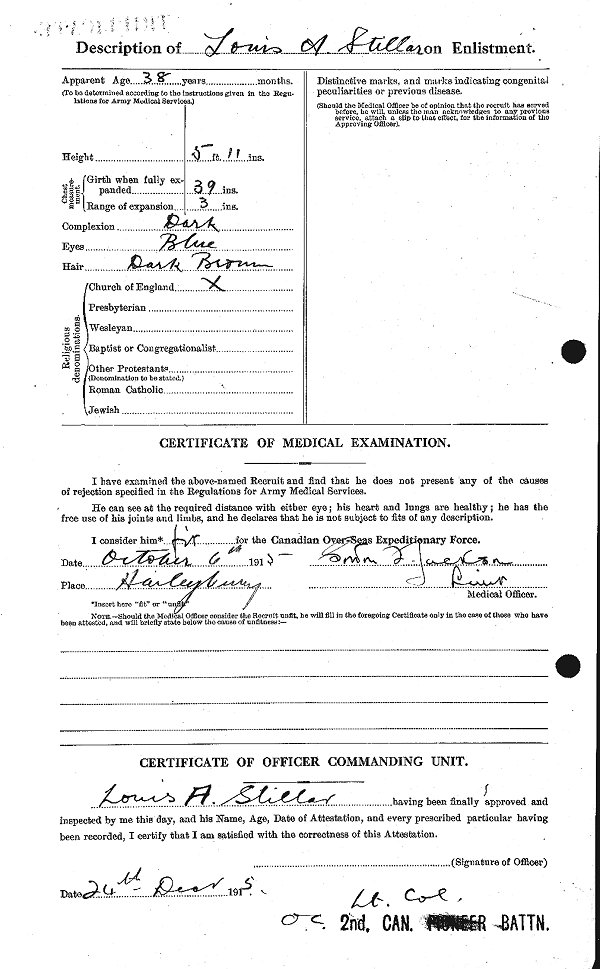 Description of Louis A Stillar on Enlistment.
Apparent Age 38 years months.
(To be determined according to the instructions given in the Regulations for Army Medical Services.)
Height 5 ft. 11 ins.
Chest measurement.
Girth when fully expanded 39 ins.
Range of expansion 3 ins.
Complexion Dark
Eyes Blue
Hair Dark Brown
Religious denominations.
Church of England X
Presbyterian
Wesleyan
Baptist or Congregationalist
Other Protestants
(Denomination to be stated.)
Roman Catholic
Jewish
Distinctive marks, and marks indicating congenital
peculiarities or previous disease.
(Should the Medical Officer be of opinion that the recruit has served
before, he will, unless the man acknowledges to any previous
service, attach a slip to that effect, for the information of the
Approving Officer).
CERTIFICATE OF MEDICAL EXAMINATION.
I have examined the above-named Recruit and find that he does not present any of the causes
of rejection specified in the Regulations for Army Medical Services.
He can see at the required distance with either eye; his heart and lungs are healthy; he has the
free use of his joints and limbs, and he declares that he is not subject to fits of any description.
I consider him* fit for the Canadian Over-Seas Expeditionary Force.
Date October 6th 1915 Jackson
Place Haileybury Lieut
Medical Officer.
*Insert here "fit" or "unfit"
NOTE.—Should the Medical Officer consider the Recruit unfit, he will fill in the foregoing Certificate only in the case of those who have
been attested, and will briefly state below the cause of unfitness:—
CERTIFICATE OF OFFICER COMMANDING UNIT.
Louis A. Stillar having been finally approved and
inspected by me this day, and his Name, Age, Date of Attestation, and every prescribed particular having
been recorded, I certify that I am satisfied with the correctness of this Attestation.
(Signature of Officer)
Date 24th Decr 1915.
Lt. Col.
O C. 2nd. CAN. PIONEER BATTN.